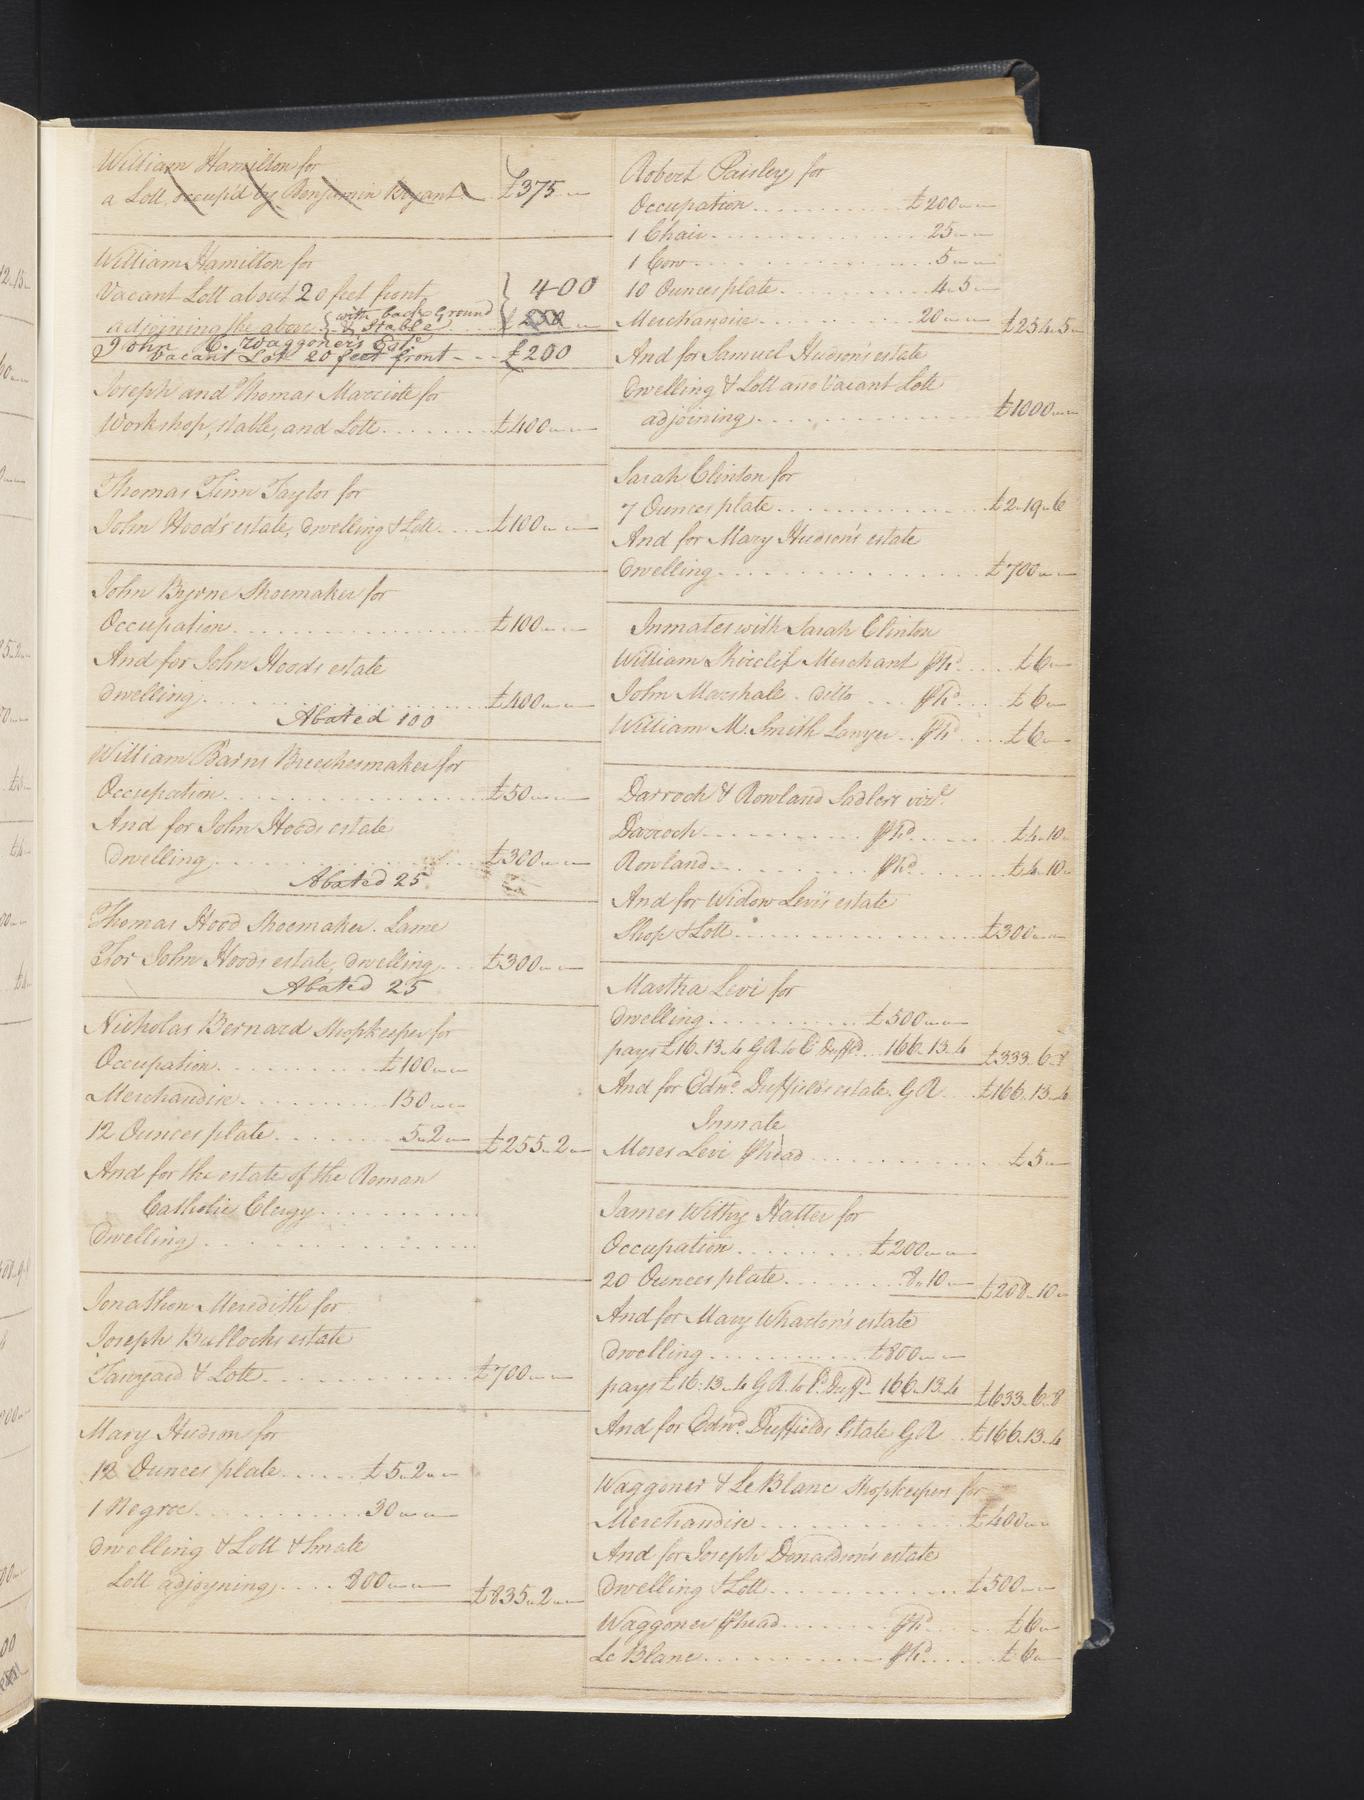 William Hamilton for
a Lott, occupd by Benjamin Bryant £375
William Hamilton for
Vacant Lott about 20 feet front 400
adjoining the above with back Ground & Stable
John H. Waggoner's Este
Vacant Lot 20 feet front £200
Joseph and Thomas for
Workshop, stable, and Lott £400
Thomas Finn Taylor for
John Hood's estate, dwelling & Lott £100
John Byrne Shoemaker for
Occupation £100
And for John Hoods estate
dwelling £400
Abated 100
William Barns Breechesmaker for
Occupation £50
And for John Hoods estate
dwelling £300
Abated 25
Thomas Hood Shoemaker. Lame
For John Hoods estate, dwelling £300
Abated 25
Nicholas Bernard Shopkeeper for
Occupation £100
Merchandise 150
12 Ounces plate 5.2 £255.2
And for the estate of the Roman
Catholic Clergy
dwelling
Jonathan Meredith for
Joseph Bullocks estate
Tanyard & Lott £700
Mary Hudson for
12 Ounces plate £5.2
1 Negroe 30
dwelling & Lott & Small
Lott adjoyning 800 £835.2
Robert Paisley for
Occupation £200
1 Chair 25
1 Cow 5
10 Ounces plate 4.5
Merchandise 20 £254.5
And for Samuel Hudson's estate
Dwelling & Lott and Vacant Lott
adjoining £1000
Sarah Clinton for
7 Ounces plate £2.19.6
And for Mary Hudson's estate
Dwelling £700
Inmates with Sarah Clinton
William Shirclif Merchant ⅌ hd £6
John Marshale ditto ⅌ hd £6
William M. Smith Lawyer ⅌ hd £6
Darroch & Rowland Sadlers vizt
Darroch ⅌ hd £4.10
Rowland ⅌ hd £4.10
And for Widow Levi's estate
Shop & Lott £300
Martha Levi for
dwelling £500
pays £16.13.4 GR to Ed Duffd 166.13.4 £333.6.8
And for Edwd Duffield's estate. GR £166.13.4
Inmate
Moses Levi ⅌ head £5
James Withy Hatter for
Occupation £200
20 Ounces plate 8.10 £208.10
And for Mary Wharton's estate
dwelling £800
pays £16.13.4 GR to Ed Duffd 166.13.4 £633.6.8
And for Edwd Duffields Estate GR £166.13.4
Waggoner & Le Blanc Shopkeepers for
Merchandise £400
And for Joseph Donaldson's estate
dwelling & Lott £500
Waggoner ⅌ head ⅌ hd £6
Le Blanc ⅌ hd £6